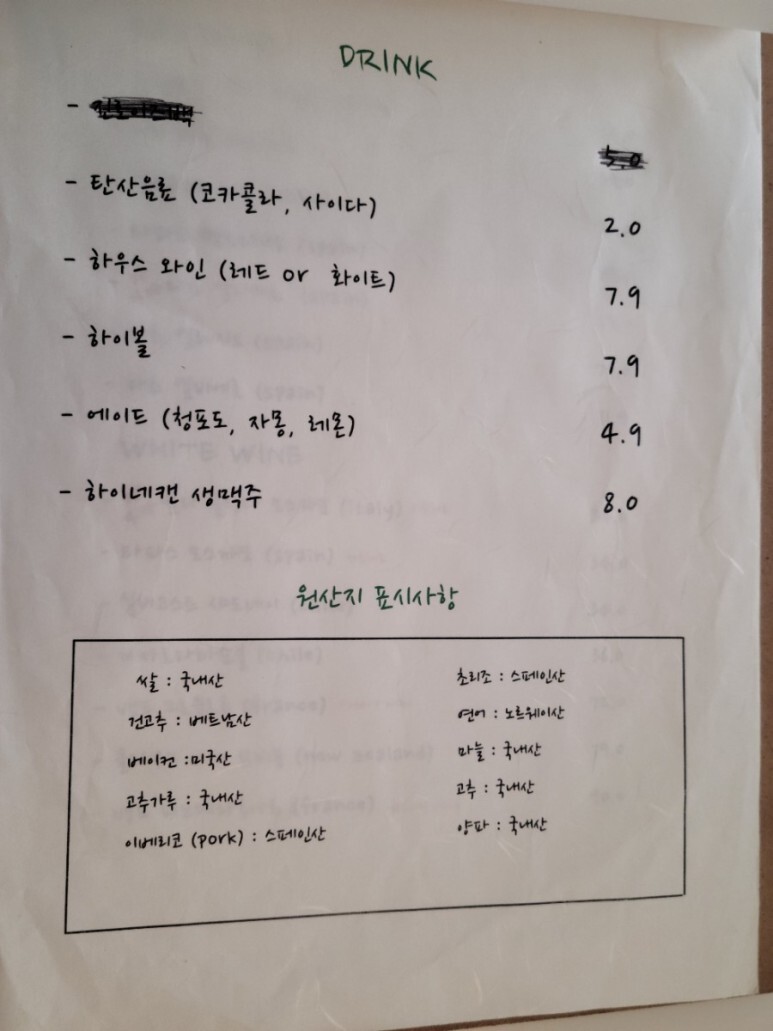 DRINK
- 탄산음료 (코카콜라, 사이다) 2.0
- 하우스 와인 (레드 or 화이트) 7.9
- 하이볼 7.9
- 에이드 (청포도, 자몽, 레몬) 4.9
- 하이네캔 생맥주 8.0
원산지 표시사항
쌀 : 국내산
건고추 : 베트남산
베이컨 : 미국산
고추가루 : 국내산
이베리코 (pork) : 스페인산
초리조 : 스페인산
연어 : 노르웨이산
마늘 : 국내산
고추 : 국내산
양파 : 국내산